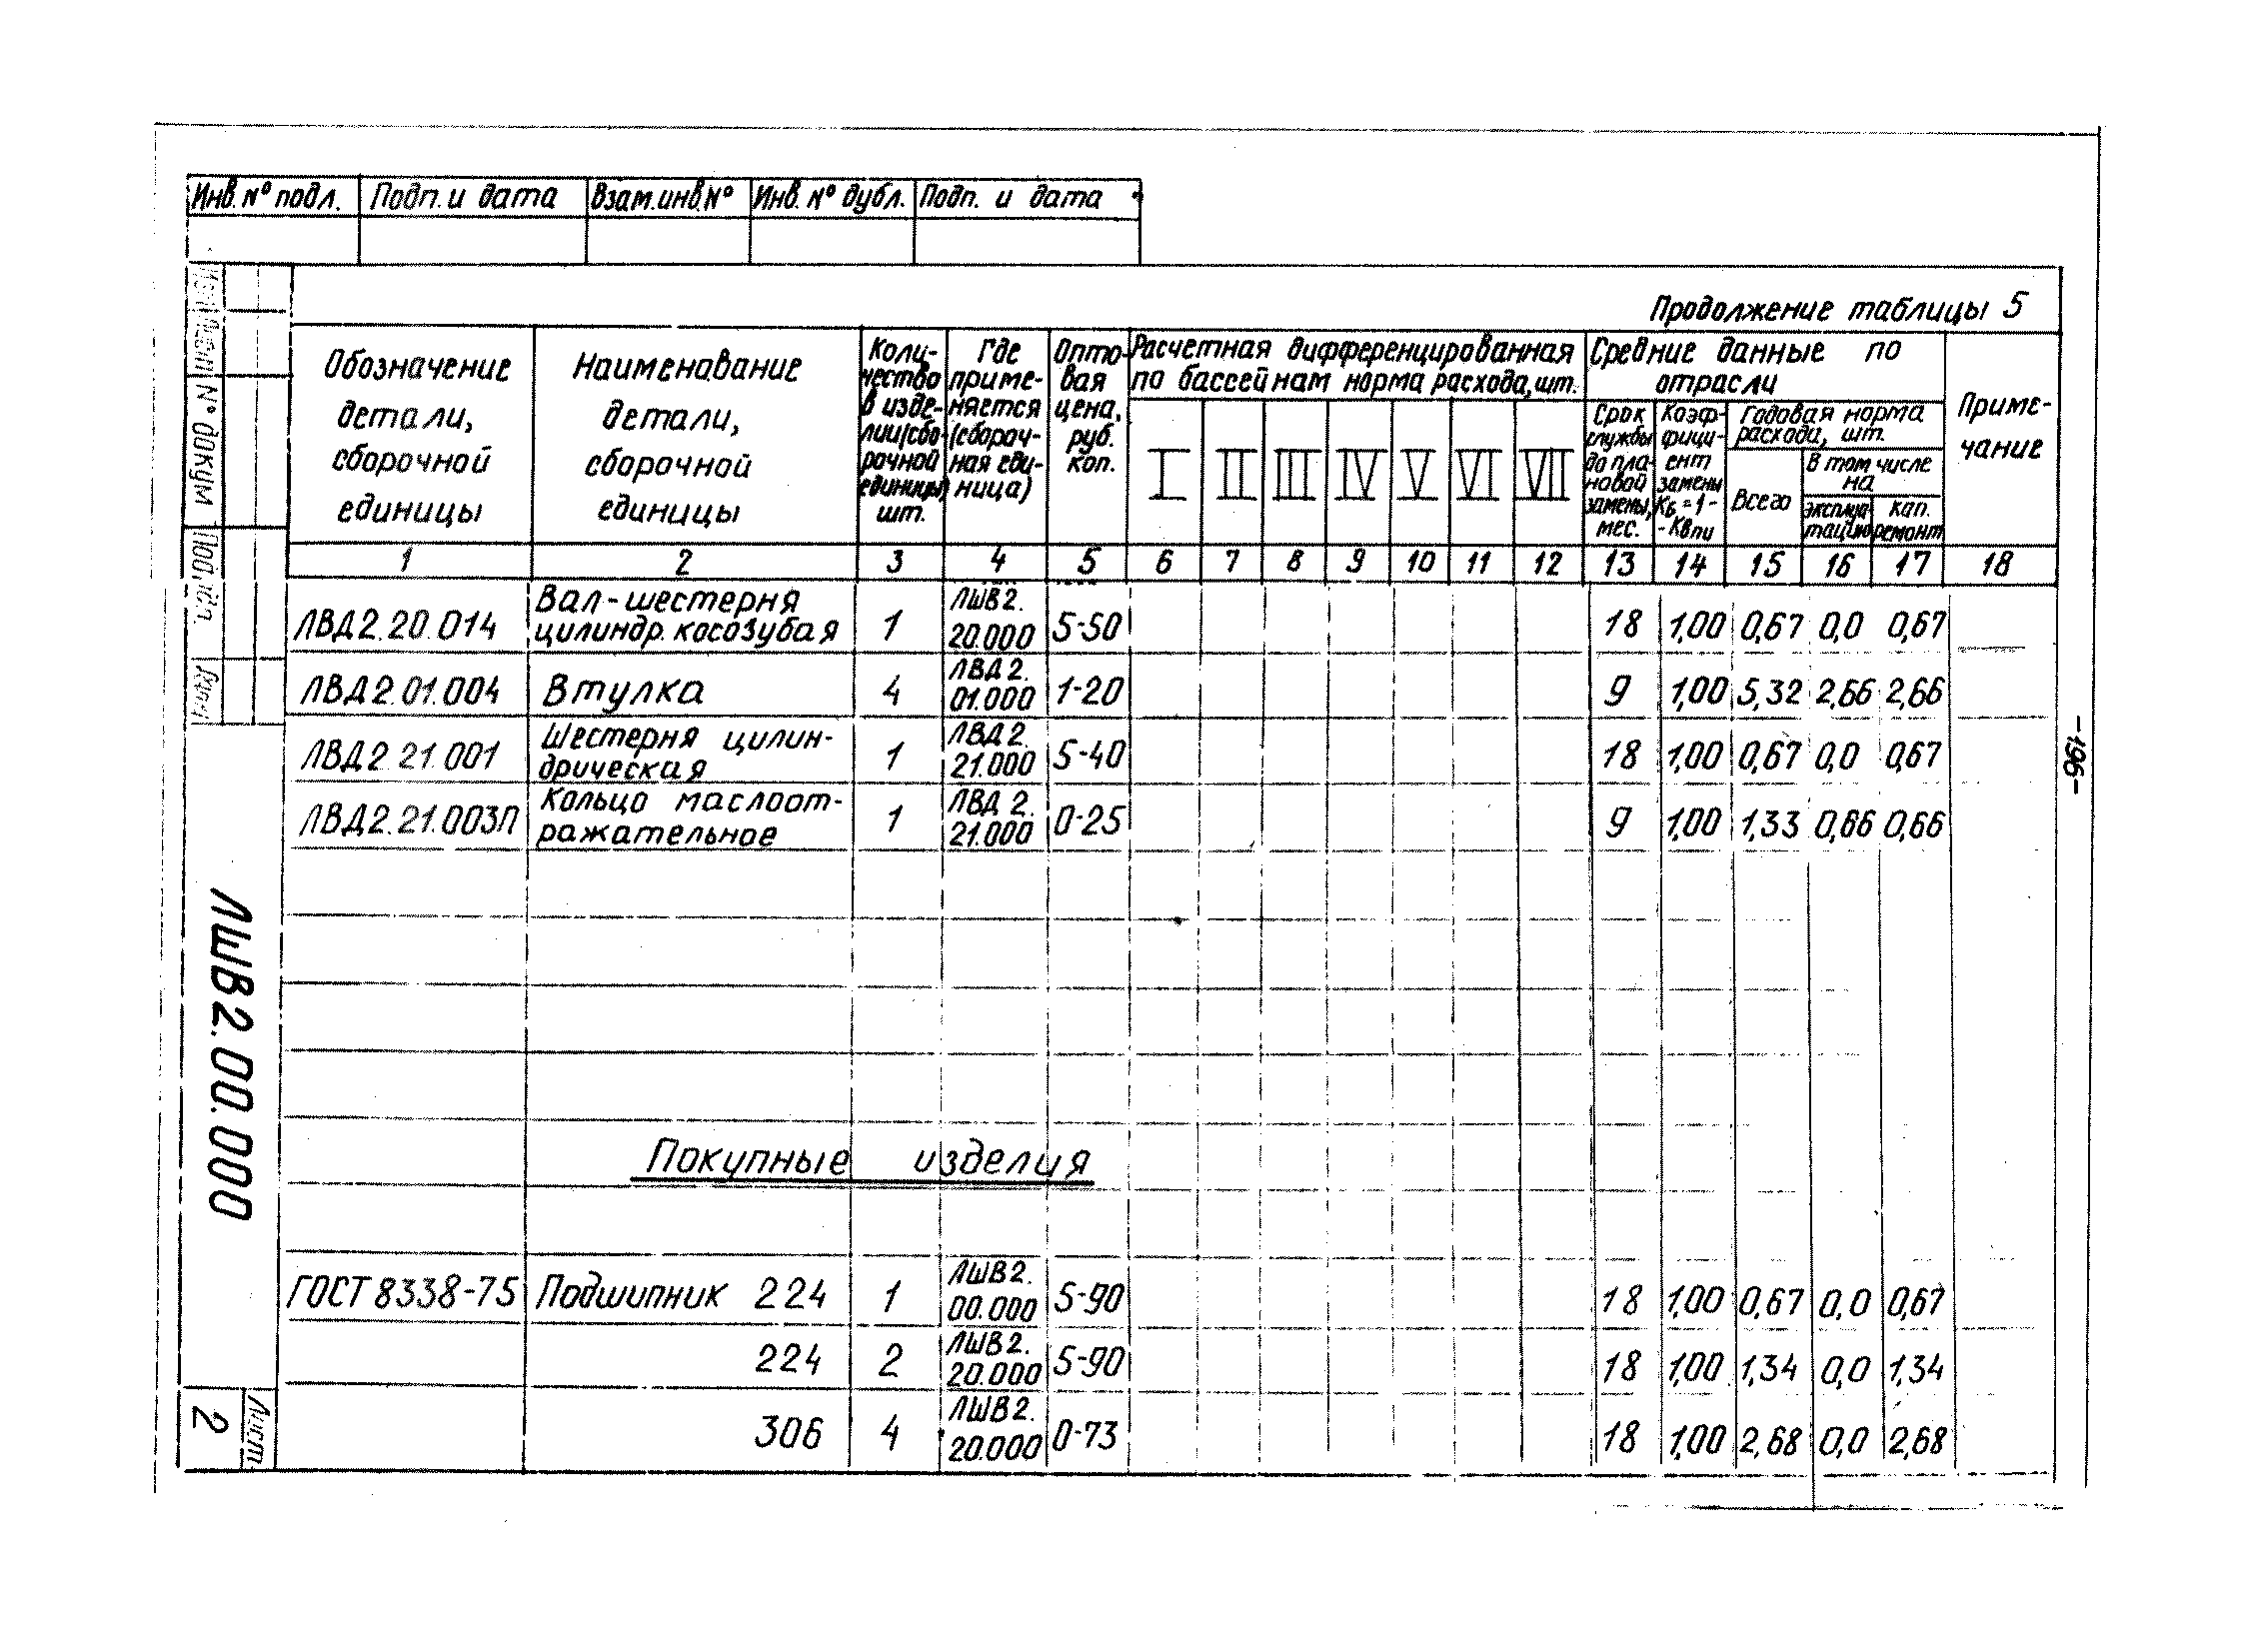 Инв. № подл. Подп. и дата Взам. инв. № Инв. № дубл. Подп. и дата
Продолжение таблицы 5
Обозначение
детали,
сборочной
единицы
Наименование
детали,
сборочной
единицы
Коли-
чество
в изде-
лии(сбо-
рочной
единицы)
шт.
Где
приме-
няется
(сбороч-
ная еди-
ница)
Опто-
вая
цена,
руб.
коп.
Расчетная дифференцированная
по бассейнам норма расхода, шт.
I II III IV V VI VII
Средние данные по
отрасли
Срок
службы
до пла-
новой
замены,
мес.
Коэф-
фици-
ент
замены
Kб = 1 -
- Kвпи
Годовая норма
расхода, шт.
Всего
В том числе
на
эксплуа-
тацию
кап.
ремонт
Приме-
чание
1 2 3 4 5 6 7 8 9 10 11 12 13 14 15 16 17 18
ЛВД2.20.014 Вал-шестерня
цилиндр. косозубая 1 ЛШВ2.
20.000 5-50 18 1,00 0,67 0,0 0,67
ЛВД2.01.004 Втулка 4 ЛВД2.
01.000 1-20 9 1,00 5,32 2,66 2,66
ЛВД2 21.001 Шестерня цилин-
дрическая 1 ЛВД2.
21.000 5-40 18 1,00 0,67 0,0 0,67
ЛВД2.21.003П Кольцо маслоот-
ражательное 1 ЛВД2.
21.000 0-25 9 1,00 1,33 0,66 0,66
Покупные изделия
ГОСТ 8338-75 Подшипник 224 1 ЛШВ2.
00.000 5-90 18 1,00 0,67 0,0 0,67
224 2 ЛШВ2.
20.000 5-90 18 1,00 1,34 0,0 1,34
306 4 ЛШВ2.
20.000 0-73 18 1,00 2,68 0,0 2,68
№ докум
ЛШВ2.00.000
Лист
2
-196-